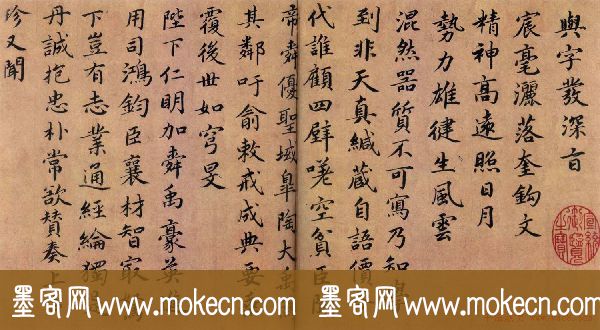 與字發深旨
宸毫灑落奎鈎文
精神高遠照日月
勢力雄健生風雲
混然器質不可寫乃知
到非天真緘藏自語價
代誰顧四壁嗟空貧臣聞
帝舜優聖域皋陶大禹
其鄰吁俞敕戒成典要
覆後世如穹旻
陛下仁明加舜禹豪英
用司鴻鈞臣襄材智最
下豈有志業通經綸獨
丹誠抱忠朴常欲贊奏上
珍又聞
宣統御覽之寶
墨客网 www.mokecn.com 墨客网 www.mokecn.com